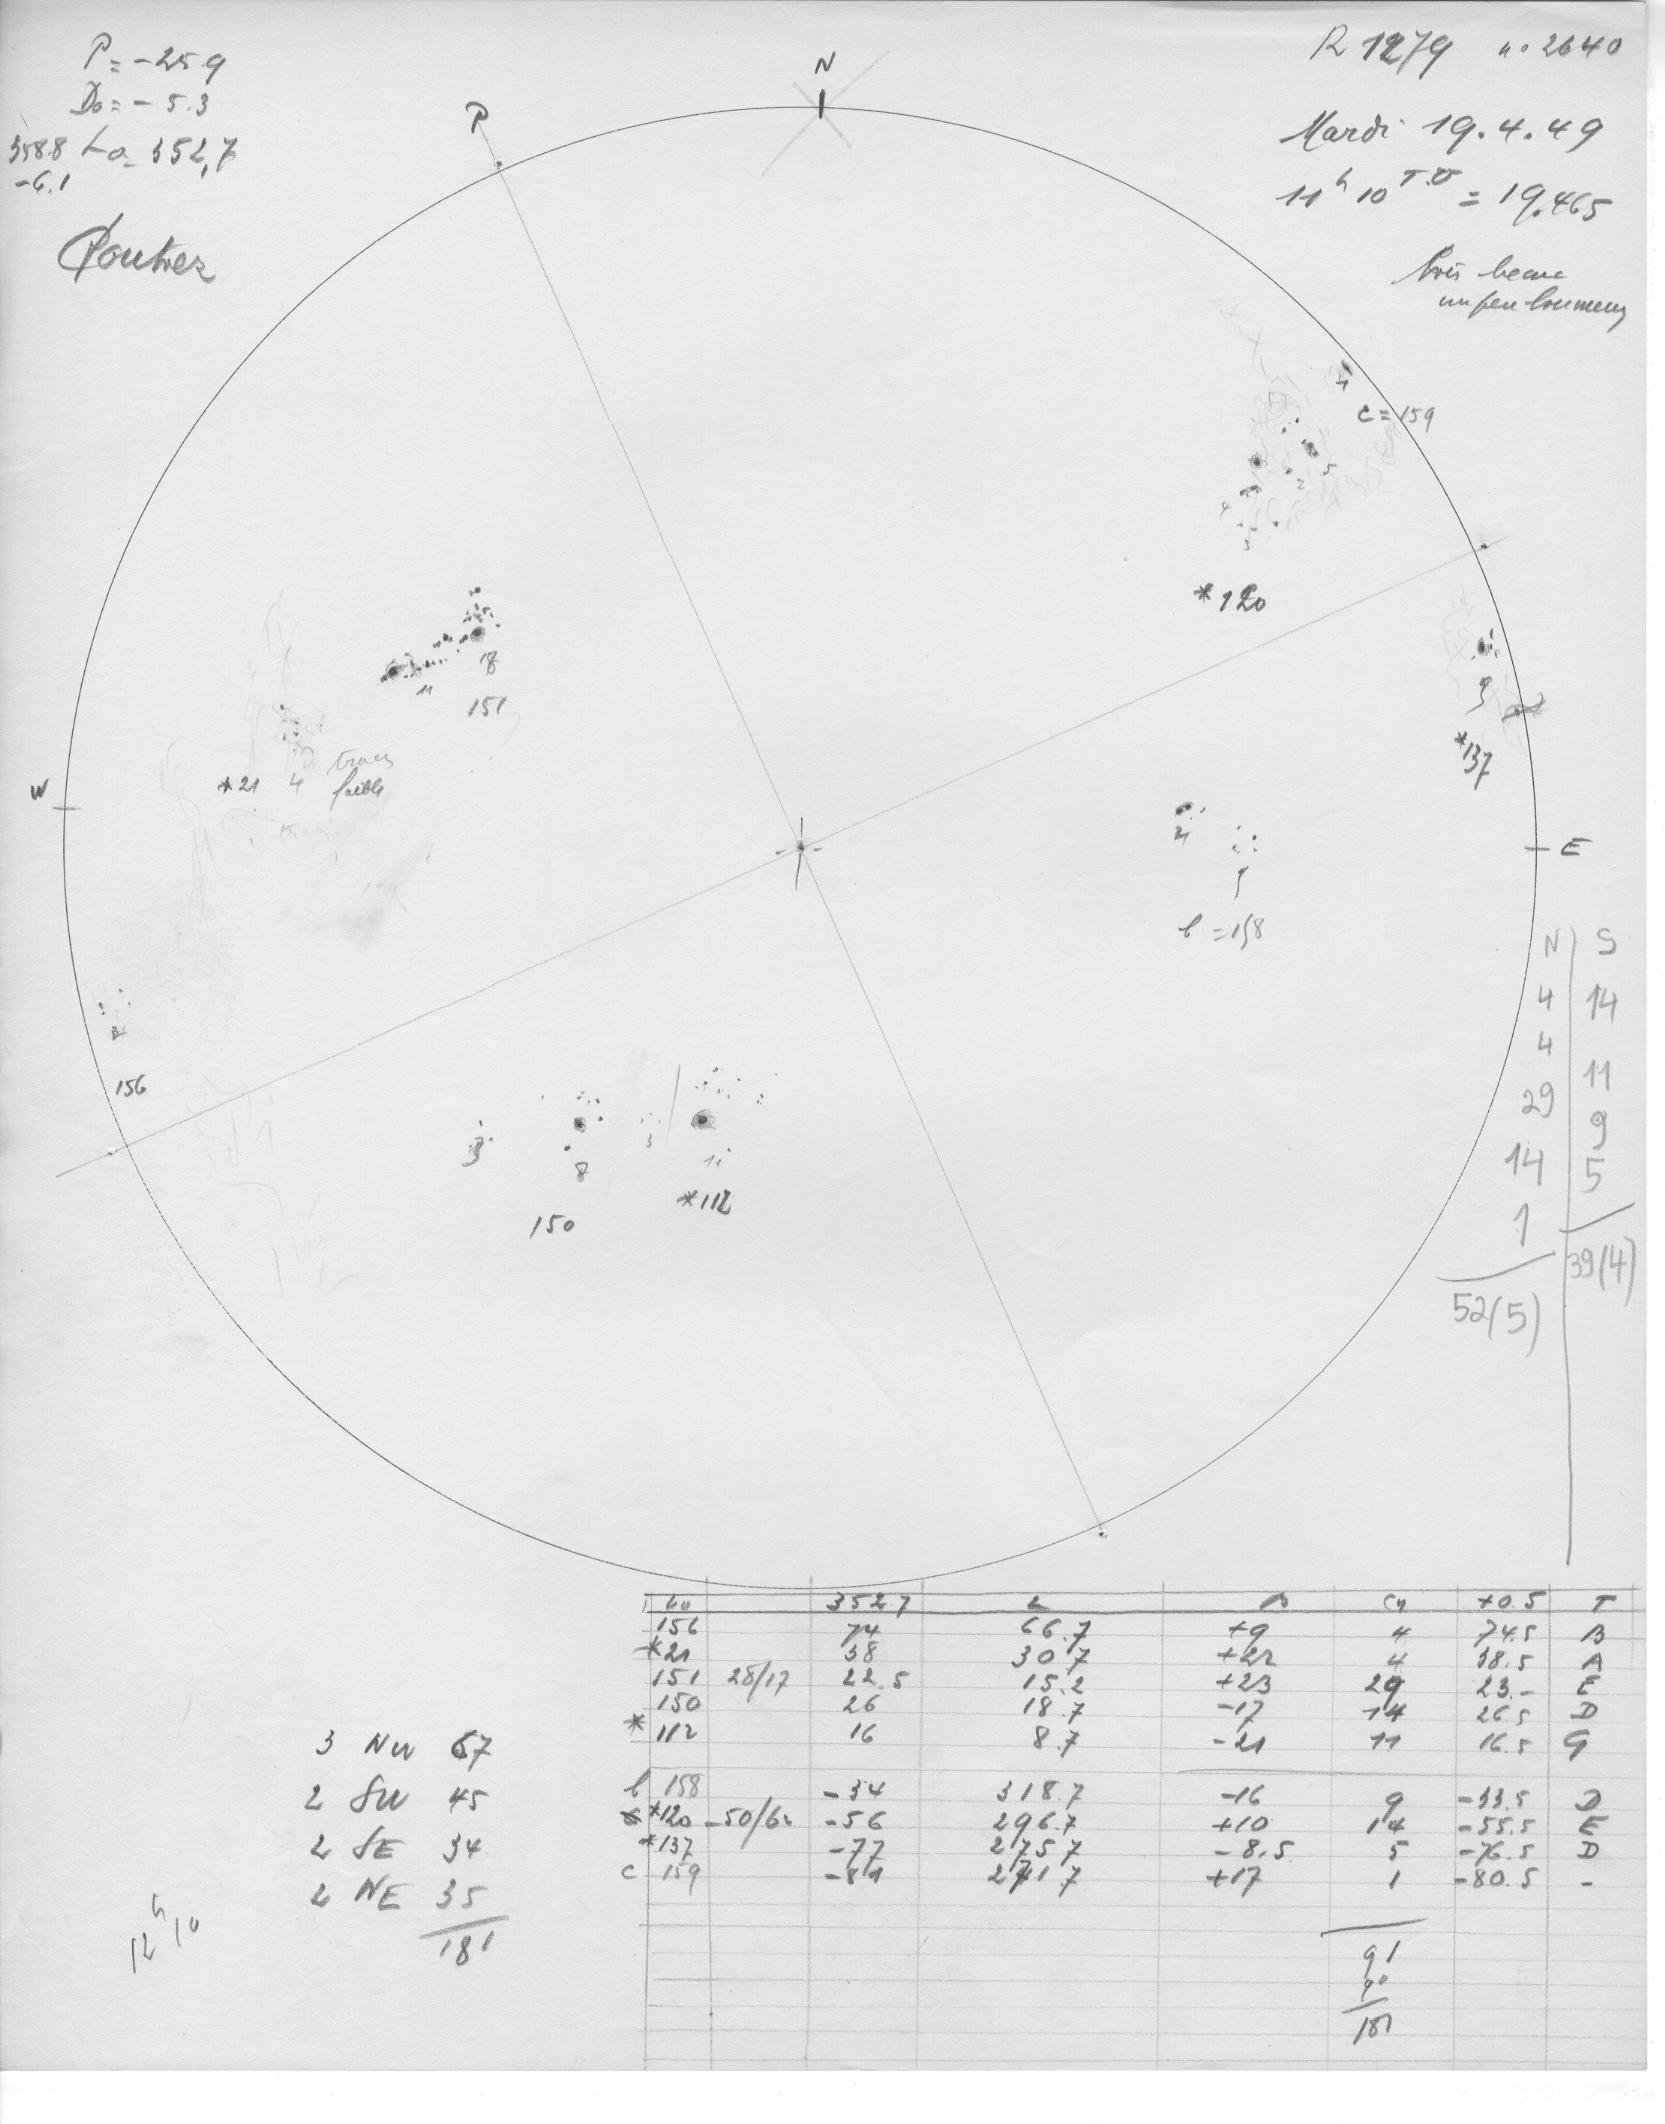 P = -25.9
D₀ = -5.3
358.8 L₀ = 352,7
-6.1
N
P
R 1279 n° 2640
Mardi 19.4.49
11 h 10 T.U = 19.465
très beau
un peu brumeux
c = 159
1
5
2
4
3
* 120
18
11
151
W
* 21 4
traces
faible
5
* 137
E
b = 158
2
156
3
8
3
11
150
* 112
N S
4 14
4 11
29 9
14 5
1
39(4)
52(5)
L₀ 352.7 L B Cy +0.5 T
156 74 66.7 +9 4 74.5 B
* 21 38 30.7 +22 4 38.5 A
151 28/17 22.5 15.2 +23 29 23.- E
150 26 18.7 -17 14 26.5 D
* 112 16 8.7 -21 11 16.5 G
b 158 -34 318.7 -16 9 -33.5 D
* 120 -50/62 -56 296.7 +10 14 -55.5 E
* 137 -77 275.7 -8.5 5 -76.5 D
c 159 -81 271.7 +17 1 -80.5 -
91
90
181
3 NW 67
2 SW 45
2 SE 34
2 NE 35
181
12 h 10